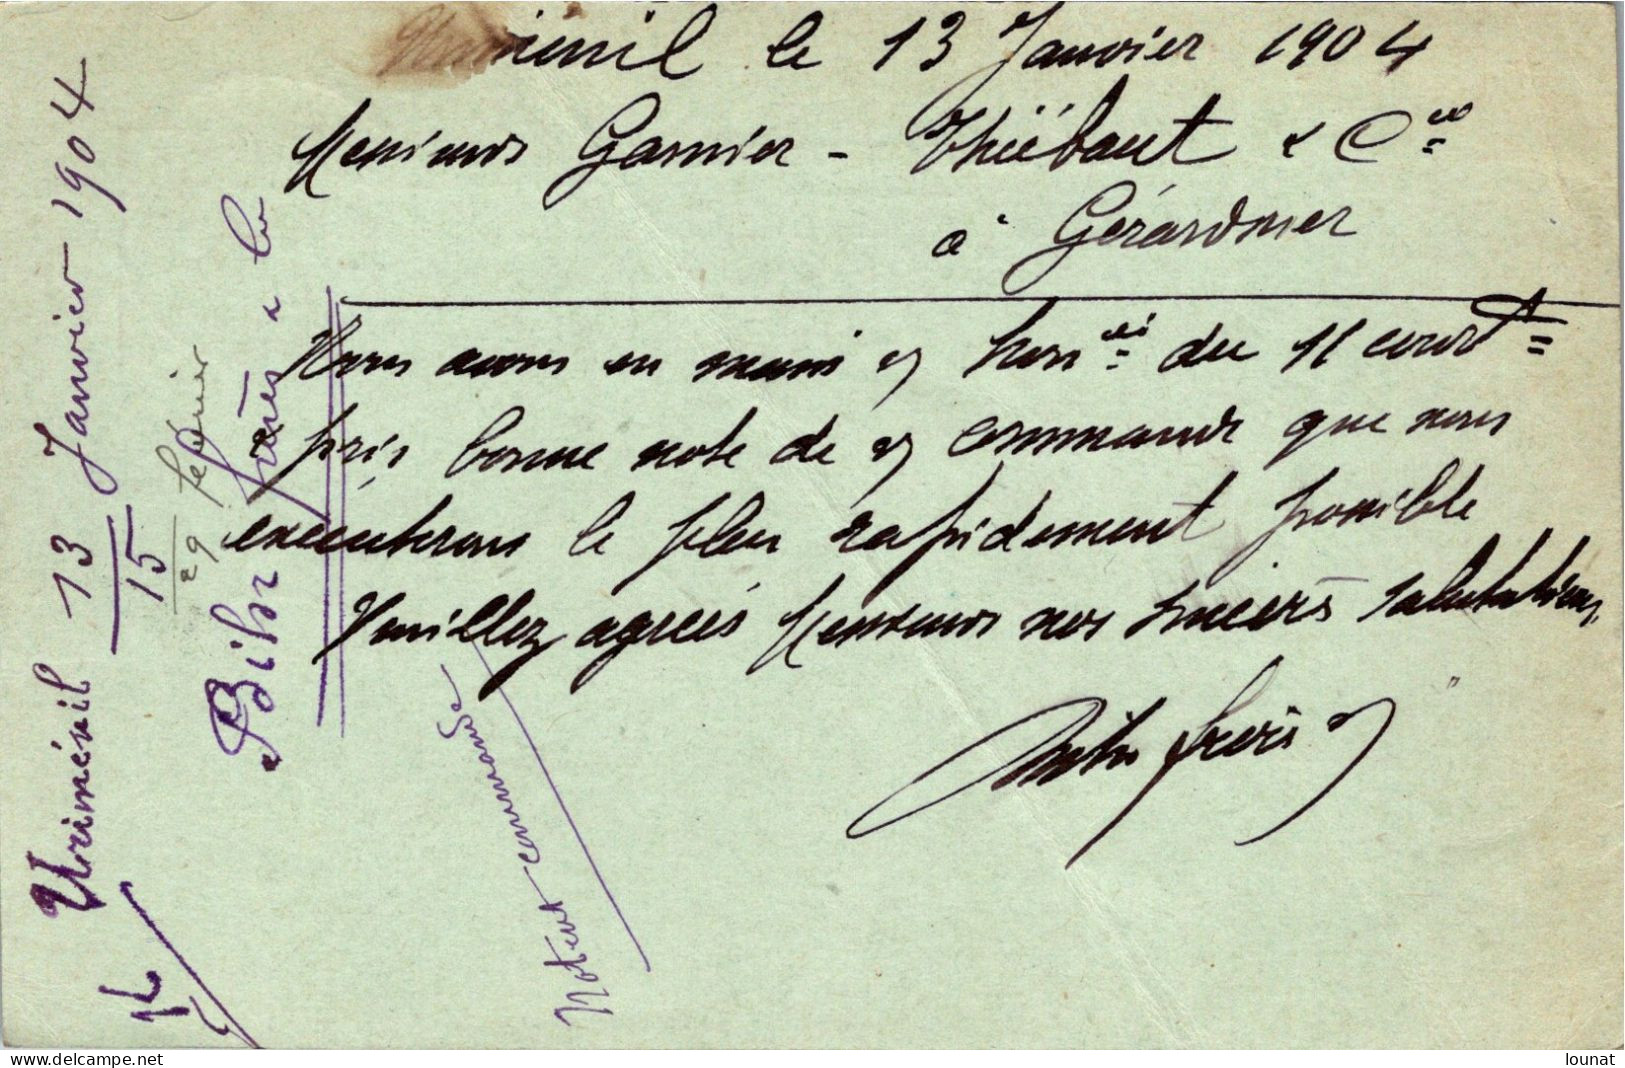 Uriménil le 13 Janvier 1904
Messieurs Garnier - Thiébaut & Cie
à Gérardmer
Nous avons en main v/ hon du 11 court
& pris bonne note de v/ commande que nous
exécuterons le plus rapidement possible
Veuillez agréer Messieurs nos sincères salutations
frères
Uriménil 13 Janvier 1904
15
29 février
Bihr frères & Cie
Notent commande
delcampe.net
lounat